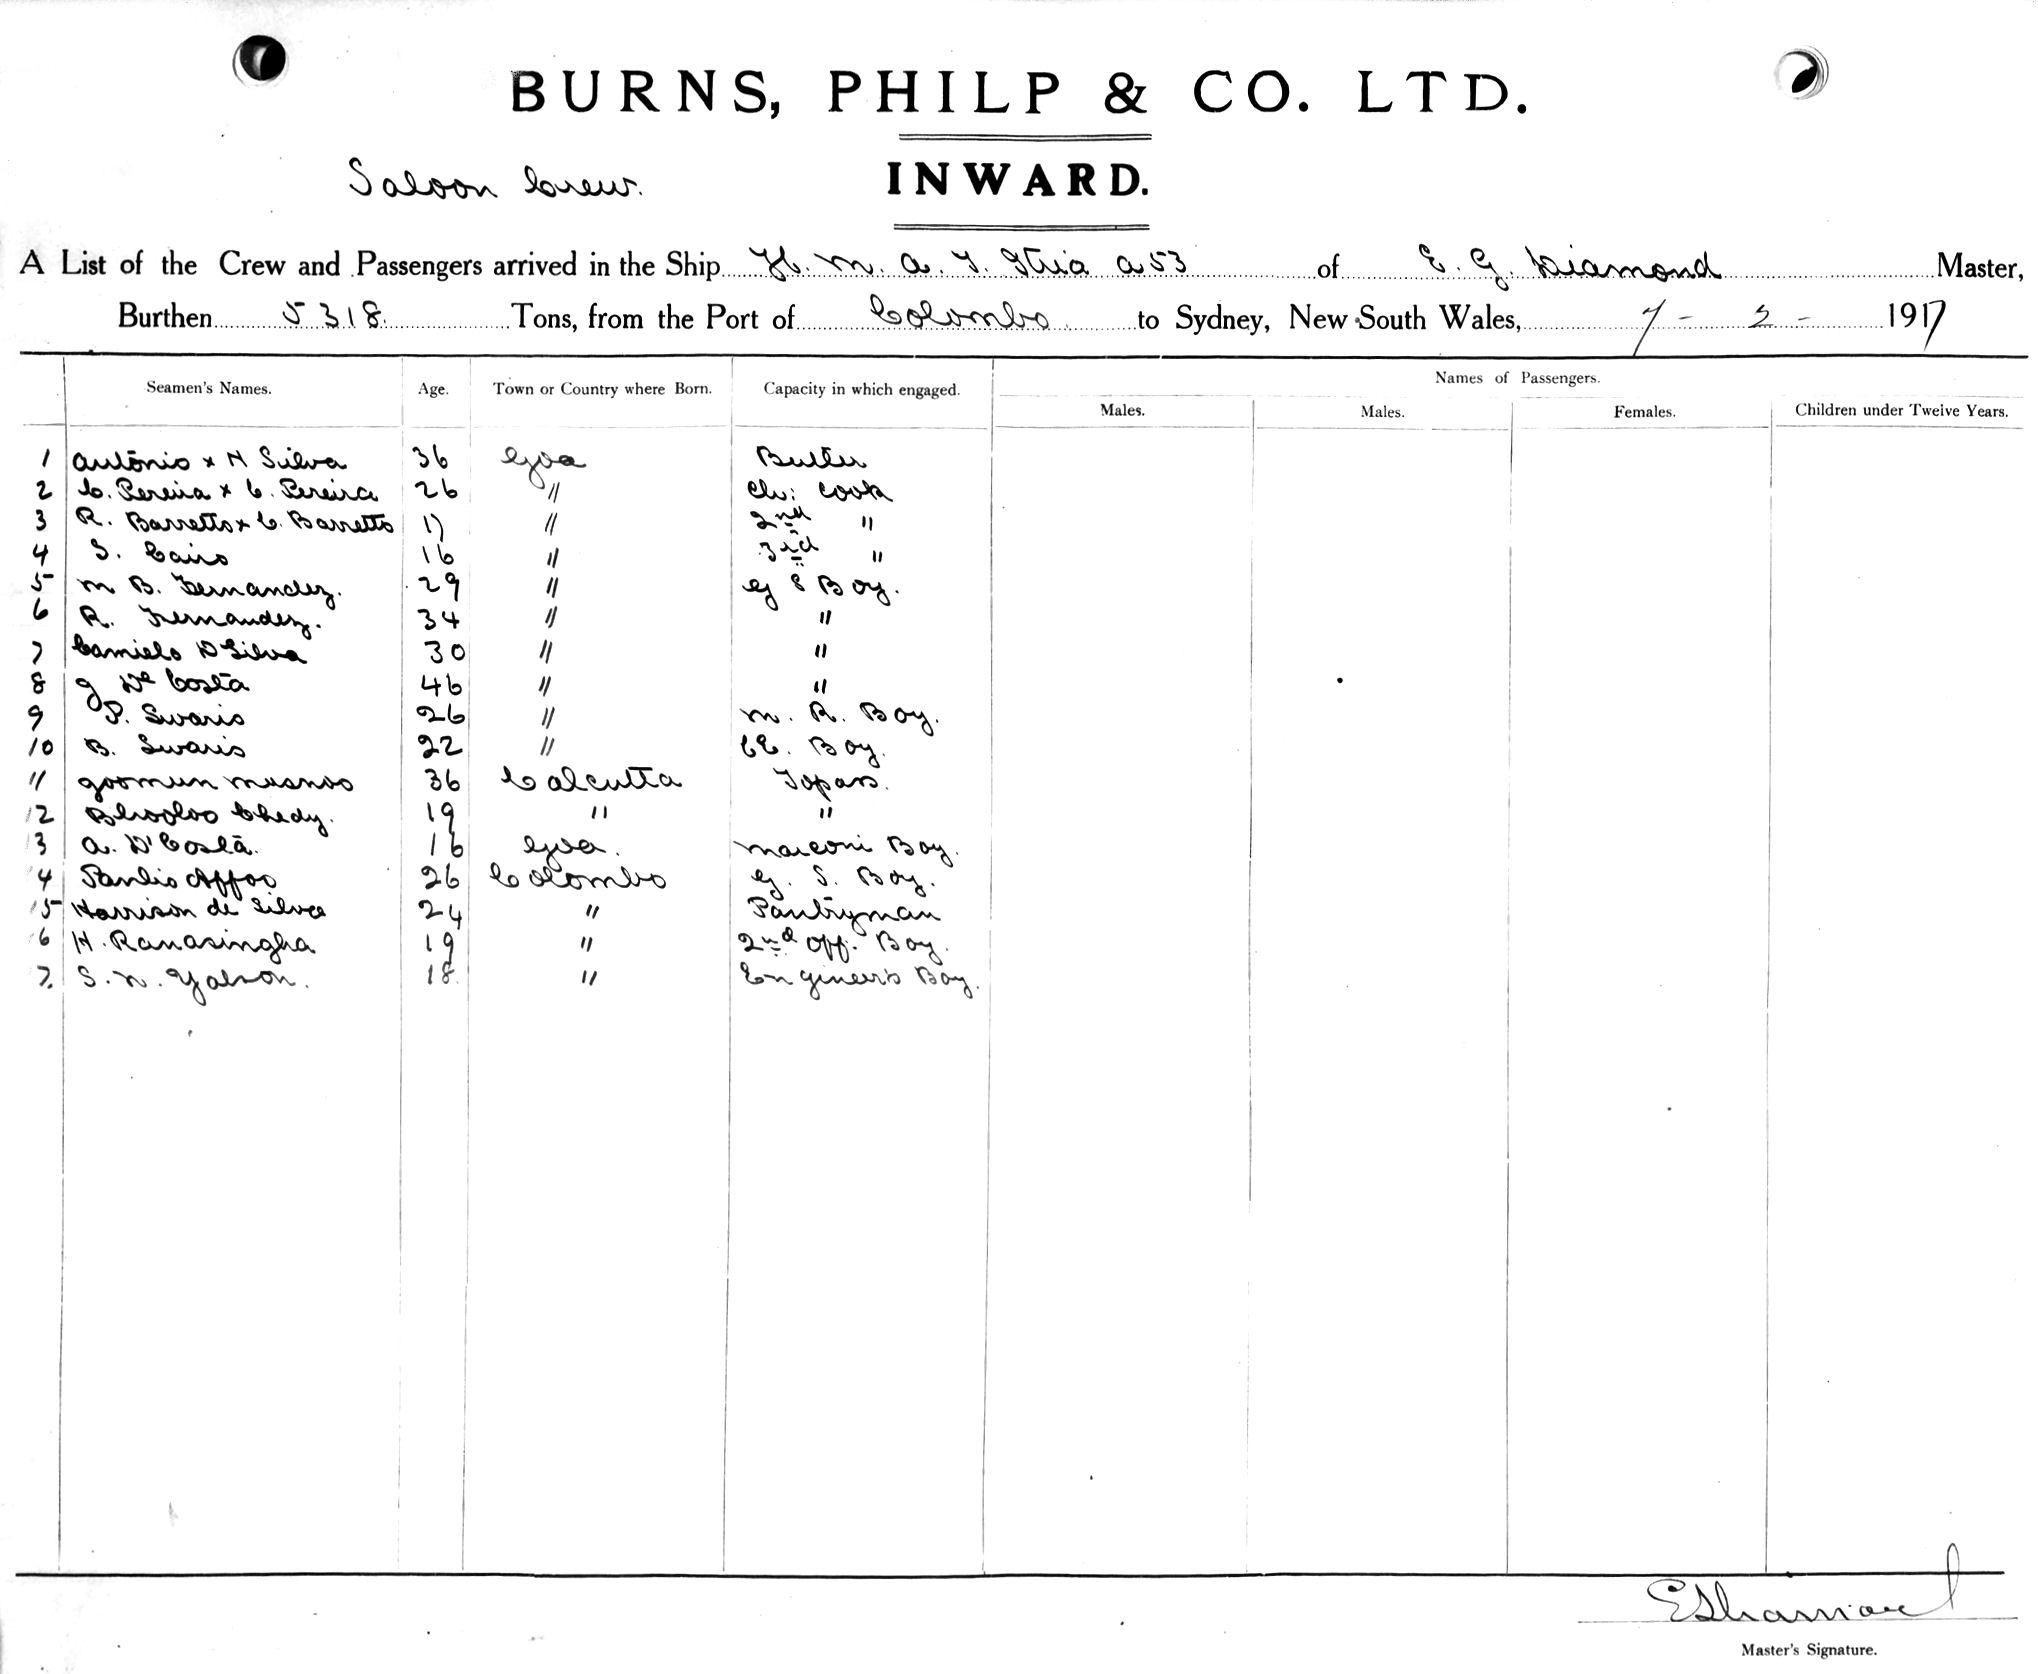 BURNS, PHILP & CO. LTD.
Saloon Crew. INWARD.
A List of the Crew and Passengers arrived in the Ship H. M. A. T. Itria A53 of E. G. Diamond Master,
Burthen 5318. Tons, from the Port of Colombo to Sydney, New South Wales, 7 - 2 - 1917
Seamen's Names. Age. Town or Country where Born. Capacity in which engaged. Names of Passengers.
Males. Males. Females. Children under Twelve Years.
1 Antonio x N Silva 36 Goa Butler
2 C. Pereira x C. Pereira 26 " Ch: Cook
3 R. Barretto x C. Barretto 17 " 2nd "
4 S. Cairo 16 " 3rd "
5 M B. Fernandez. 29 " G S Boy.
6 R. Fernandez. 34 " "
7 Camielo D Silva 30 " "
8 J De Costa 46 " "
9 P. Swaris 26 " M. R. Boy.
10 B. Swaris 22 " CE. Boy.
11 Goomun 36 Calcutta Topass.
12 Bhooloo Chedy. 19 " "
13 A. D'Costa. 16 Goa. Marconi Boy.
14 Appoo 26 Colombo G. S. Boy.
15 Harrison de Silva 24 " Pantryman
16 H. Ranasingha 19 " 2nd Off. Boy.
17. S. N. 18. " Engineers Boy.
E G Diamond
Master's Signature.